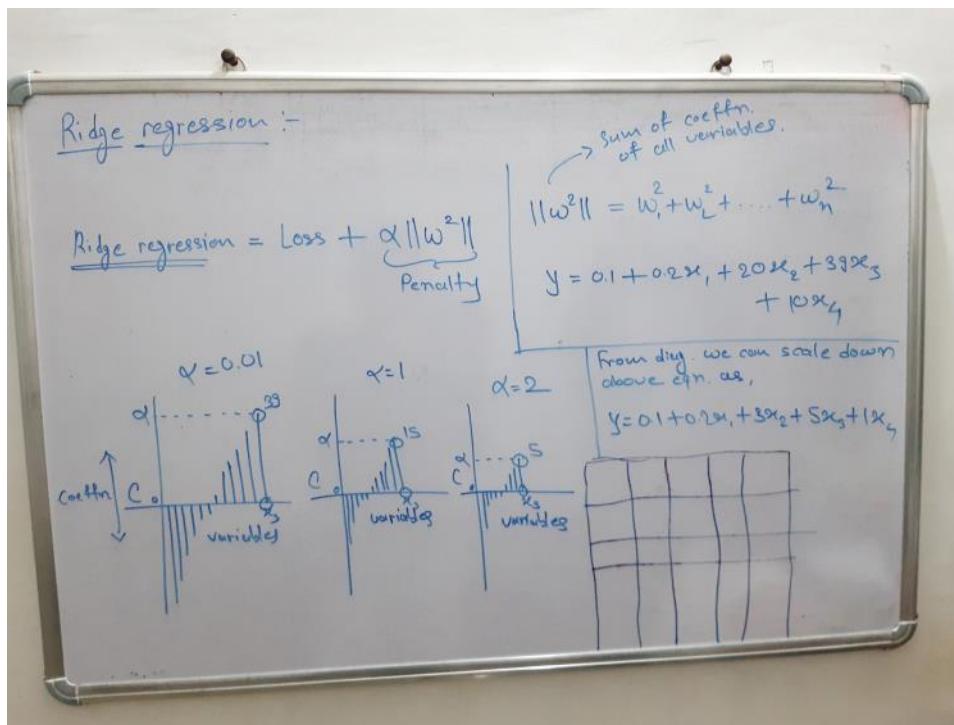 Ridge regression :-
Ridge regression = Loss + α||w²||
Penalty
Sum of coeffn.
of all variables.
||w²|| = w₁² + w₂² + .... + wₙ²
y = 0.1 + 0.2x₁ + 20x₂ + 39x₃
+ 10x₄
From diag. we can scale down
above eqn. as,
y = 0.1 + 0.2x₁ + 3x₂ + 5x₃ + 1x₄
α = 0.01
α
39
coeffn
C
0
x₃
variables
α = 1
α
15
C
0
x₃
variables
α = 2
α
5
C
0
x₃
variables